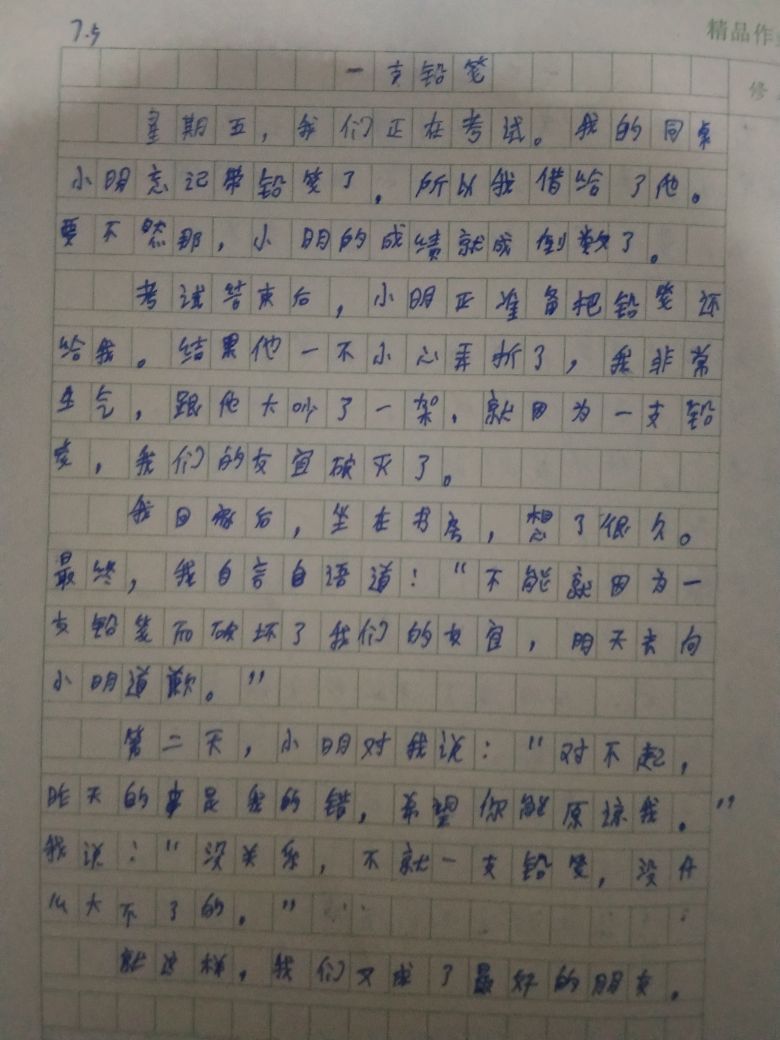 7.5
精品作
修
一支铅笔
星期五，我们正在考试。我的同桌
小明忘记带铅笔了，所以我借给了他。
要不然那，小明的成绩就成倒数了。
考试结束后，小明正准备把铅笔还
给我。结果他一不小心弄折了，我非常
生气，跟他大吵了一架，就因为一支铅
笔，我们的友宜破灭了。
我回家后，坐在书房，想了很久。
最终，我自言自语道：“不能就因为一
支铅笔而破坏了我们的友宜，明天去向
小明道歉。”
第二天，小明对我说：“对不起，
昨天的事是我的错，希望你能原谅我。”
我说：“没关系，不就一支铅笔，没什
么大不了的。”
就这样，我们又成了最好的朋友。